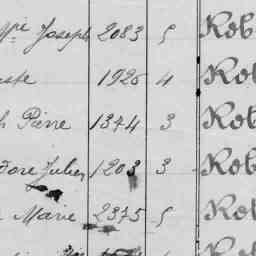 Joseph 2083 5 Rob
1926 4 Rob
Pierre 1374 3 Rob
Fore Julien 1203 3 Rob
Marie 2375 5 Rob
Rob